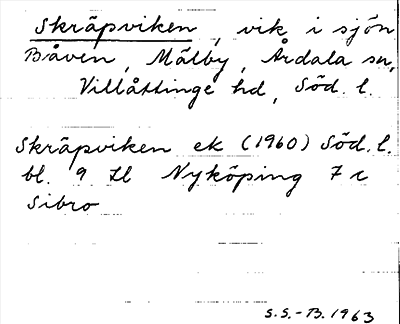 Skräpviken, vik i sjön
Båven, Mälby, Årdala sn,
Villåttinge hd, Söd. l.
Skräpviken ek (1960) Söd. l.
bl. 9 Nyköping 7 c
Sibro
S.S.-B. 1963